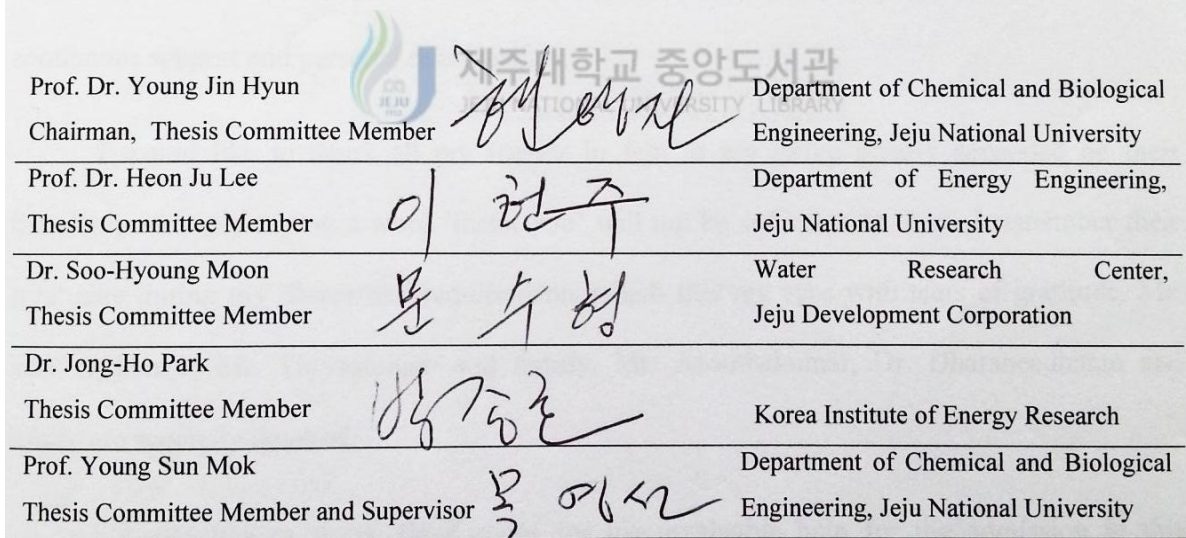 제주대학교 중앙도서관
JEJU NATIONAL UNIVERSITY LIBRARY
Prof. Dr. Young Jin Hyun
Chairman, Thesis Committee Member
현영진
Department of Chemical and Biological
Engineering, Jeju National University
Prof. Dr. Heon Ju Lee
Thesis Committee Member
이헌주
Department of Energy Engineering,
Jeju National University
Dr. Soo-Hyoung Moon
Thesis Committee Member
문수형
Water Research Center,
Jeju Development Corporation
Dr. Jong-Ho Park
Thesis Committee Member
박종호
Korea Institute of Energy Research
Prof. Young Sun Mok
Thesis Committee Member and Supervisor
목영선
Department of Chemical and Biological
Engineering, Jeju National University